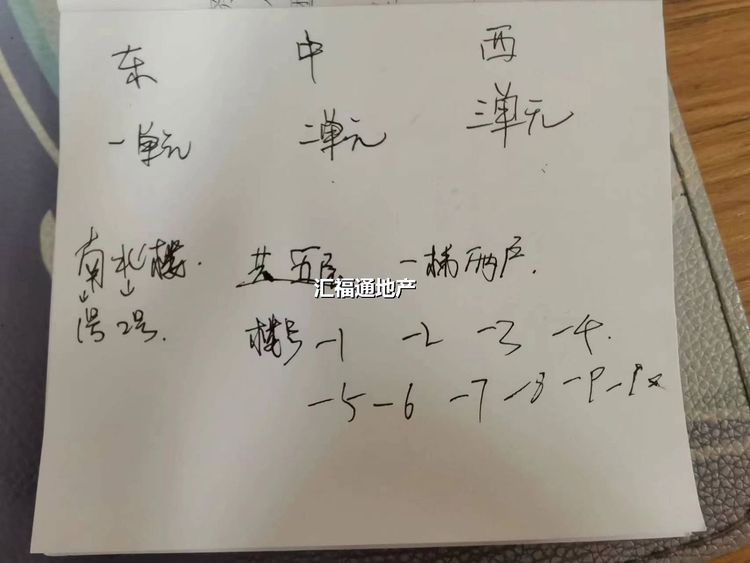 东 中 西
一单元 二单元 三单元
南北楼. 共五层 一梯两户.
汇福通地产
1号 2号. 楼号 -1 -2 -3 -4.
-5 -6 -7 -8 -9